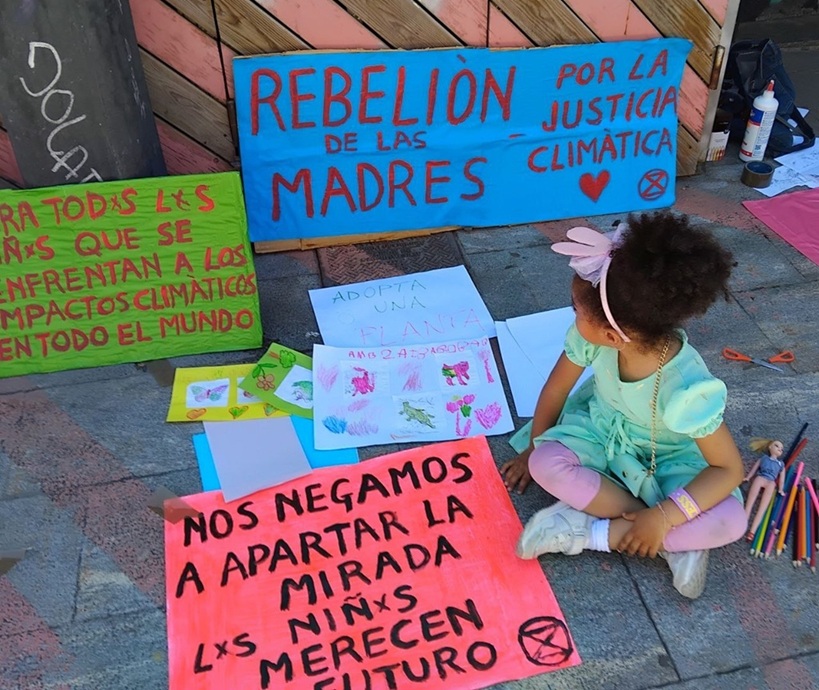 REBELIÒN
DE LAS
MADRES
POR LA
JUSTICIA
CLIMÀTICA
RA TODXS LXS
ÑXS QUE SE
ENFRENTAN A LOS
MPACTOS CLIMÀTICOS
EN TODO EL MUNDO
ADOPTA
UNA
PLANTA
NOS NEGAMOS
A APARTAR LA
MIRADA
LXS NIÑXS
MERECEN
FUTURO